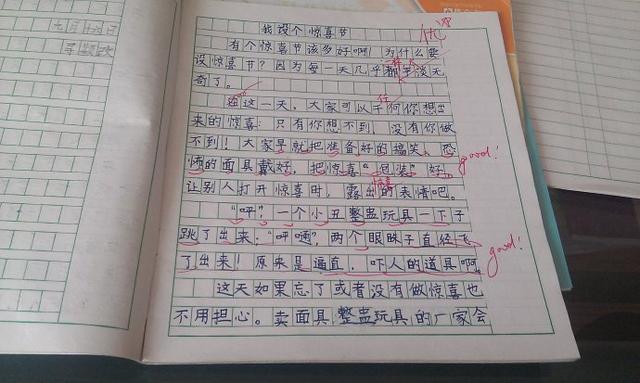 我设个惊喜节
优
有个惊喜节该多好啊！为什么要
设惊喜节？因为每一天几乎都平淡无
奇了。
在这一天，大家可以任何你想出
来的惊喜：只有你想不到，没有你做
不到！大家早就把准备好的搞笑、恐
怖的面具戴好，把惊喜“包装”好，
good!
让别人打开惊喜时，露出惊喜的表情吧。
“呯”，一个小丑整蛊玩具一下子
跳了出来；“呯嗵”，两个眼睛子直径飞
了出来！原来是逼直、吓人的道具啊。
good!
这天如果忘了或者没有做惊喜也
不用担心。卖面具、整蛊玩具的厂家会